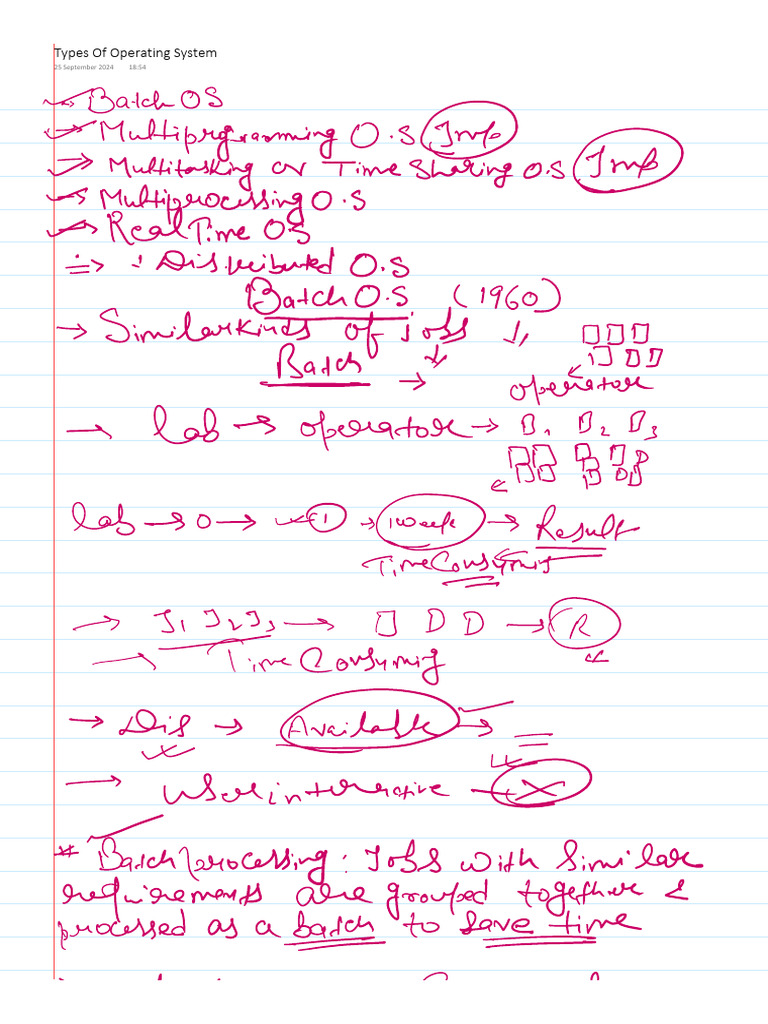 Types Of Operating System
25 September 2024 18:54
Batch OS
Multiprogramming O.S Imp
Multitasking or Time Sharing O.S Imp
Multiprocessing O.S
Real Time OS
Distributed O.S
Batch O.S (1960)
→ Similar kinds of jobs
Batch →
operator
→ lab → operator → B1 B2 B3
lab → 0 → 1 → 1 week → Result
Time Consuming
→ J1 J2 J3 → → R
→ Time Consuming
→ Dis → Available →
→ User interactive X
* Batch processing: Jobs with similar
requirements are grouped together &
processed as a batch to save time